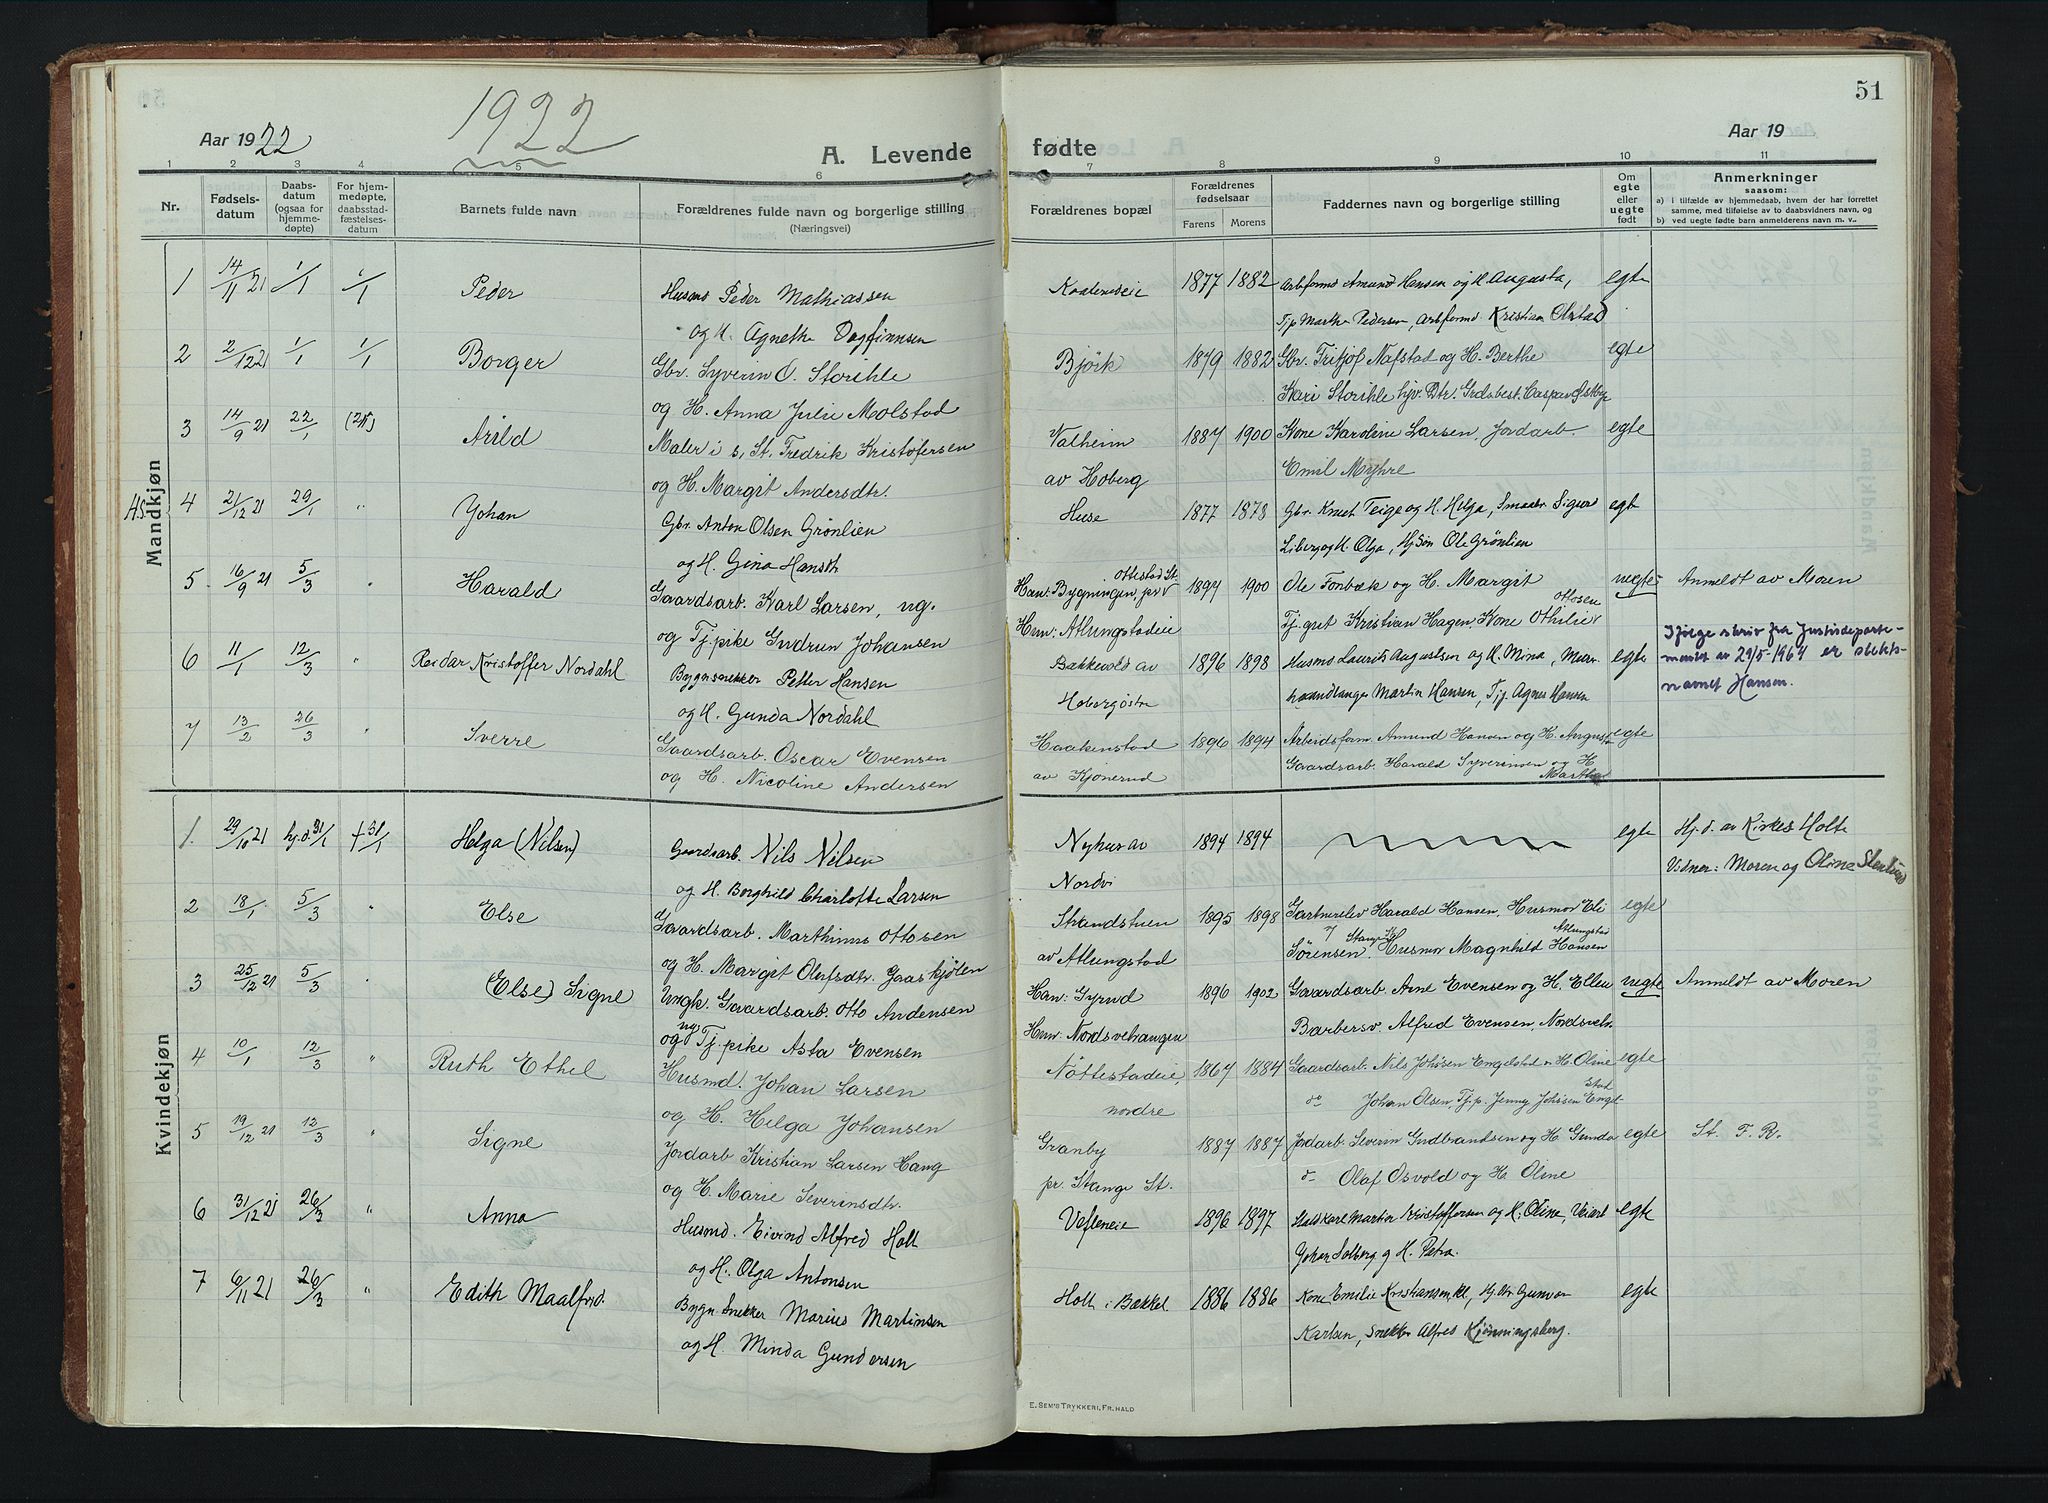 51
1922
Aar 1922
A. Levende fødte
Aar 19
1 2 3 4 5 6 7 8 9 10 11
Nr.
Fødsels-
datum
Daabs-
datum
(ogsaa for
hjemme-
døpte)
For hjem-
medøpte,
daabsstad-
fæstelses-
datum
Barnets fulde navn
Forældrenes fulde navn og borgerlige stilling
(Næringsvei)
Forældrenes bopæl
Forældrenes
fødselsaar
Farens Morens
Faddernes navn og borgerlige stilling
Om
egte
eller
uegte
født
Anmerkninger
saasom:
a) i tilfælde av hjemmedaab, hvem der har forrettet
samme, med tilføielse av to daabsvidners navn, og
b) ved uegte fødte barn anmelderens navn m. v..
Mandkjøn
1 14/11 21 1/1 1/1 Peder Husmd Peder Mathiassen Kaalerudeie 1877 1882 Arbformd Amund Hansen og H. Augusta, egte
og H. Agnethe Dagfinnsen Tjp Marthe Pedersen, Arbformd Kristian Olstad
2 2/12 21 1/1 1/1 Borger Gbr. Syverin O. Storihle Bjørk 1879 1882 Gbr. Fritjof Nafstad og H. Berthe egte
og H. Anna Julie Molstad Kari Storihle hjv. Dtr. Grdsbest. Caspar
3 14/9 21 22/1 Arild Maler i s. St. Fredrik Kristofersen Valheim 1887 1900 Kone Karoline Larsen, Jordarb. egte
og H. Margit Andersdtr. av Hoberg Emil Myhre
HS. 4 21/12 21 29/1 " Johan Gbr. Anton Olsen Grønlien Huse 1877 1878 Gbr. Knut Teige og H. Helga, Smaabr. Sigurd egte
og H. Gina Hansdtr Liberg og H. Olga, Hj Søn Ole Grønlien
5 16/9 21 5/3 " Harald Gaardsarb. Karl Larsen, ug. Han: Bygningen, pr Ottestad St. 1897 1900 Ole Fonbæk og H. Margit uegte Anmeldt av Moren
og Tj. pike Gudrun Johansen Hun: Atlungstadeie Tj.gut Kristian Hagen, Kone Othilie Ottosen
6 11/1 12/3 " Reidar Kristoffer Nordahl Bygn.snekker Petter Hansen Bækkevold av 1896 1898 Husmd Laurits Augustsen og H. Mina, Murer egte
og H. Gunda Nordahl Hobergøstre haandlanger Martin Hansen, Tjp Agnes Hansen
Ifølge skriv fra Justisdeparte-
mentet av 29/5-1967 er slekts-
navnet Hansen.
7 13/2 26/3 " Sverre Gaardsarb. Oscar Evensen Haakenstad 1896 1894 Arbeidsform. Amund Hansen og H. Augusta egte
og H. Nicoline Andersen av Kjonerud Gaardsarb. Harald Syversen og H Martha
Kvindekjøn
1. 29/10 21 hj.d. 31/1 + 31/1 Helga (Nilsen) Gaardsarb. Nils Nilsen Nyhus av 1894 1894 egte Hj.d. av Kirkes. Holte
og H. Borghild Charlotte Larsen Nordvi Vidner: Moren og Oline
2 18/1 5/3 " Else Gaardsarb. Marthinus Ottosen Strandstuen 1895 1898 Gartnerelev Harald Hansen, Husmor Eli egte
og H. Margit Olufsdtr. Gaaskjølen av Atlungstad Sørensen, Stange St. Husmor Magnhild Hansen Atlungstad
3 25/12 21 5/3 " (Else) Signe Ungk. Gaardsarb. Otto Andersen Han: Gyrud 1896 1902 Gaardsarb. Arne Evensen og H. Ellen uegte Anmeldt av Moren
og ug Tj. pike Asta Evensen Hun: Nordsvehangen Barbersv. Alfred Evensen, Nordsveh.
4 10/1 12/3 " Ruth Ethel Husmd. Johan Larsen Nøttestadeie, 1867 1884 Gaardsarb. Nils Johssen Engelstad og H. Oline egte
og H. Helga Johansen nordre do Johan Olsen, Tj.p. Jenny Johssen Engelstad
5 19/12 21 12/3 " Signe Jordarb Kristian Larsen Haug Granby 1887 1887 Jordarb Severin Gudbrandsen og H. Gunda egte St. F. R.
og H. Marie Severinsdtr. pr. Stange St. do Olaf Osvold og H. Oline
6 31/12 21 26/3 " Anna Husmd. Eivind Alfred Holt Vefleneie 1896 1897 Staldkarl Martin Kristoffersen og H. Olina, egte
og H. Olga Antonsen Johan Solberg og H. Petra.
7 6/11 21 26/3 " Edith Maalfrid. Bygn. Snekker Marius Martinsen Holt i Bækkel. 1886 1886 Kone Emilie Kristiansen, Hj. Dtr. Gunvor egte
og H. Minda Gundersen Karlsen, Snekker Alfred Kjønningsberg.
E. SEM'S TRYKKERI, FR. HALD